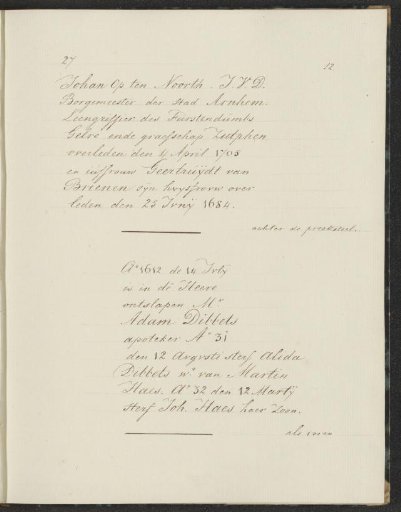 27
12
Johan Op ten Noorth. J.V.D.
Borgemeester der stad Arnhem.
Leengriffier des Furstendumbs
Gelre ende graefschap Zutphen
overleden den 4 April 1708
en iuffrouw Geertruijdt van
Brienen syn huysfrouw over
leden den 28 Jvny 1684.
achter de preekstoel.
Aº 1612 de 14 Jvly
is in de Heere
ontslapen Mr
Adam Dibbets
apoteker Aº 31
den 12 Avgvsti sterf Alida
Dibbets van Marten
Haes. Aº 32 den 12 Marty
sterf Joh. Haes haer Zoon.